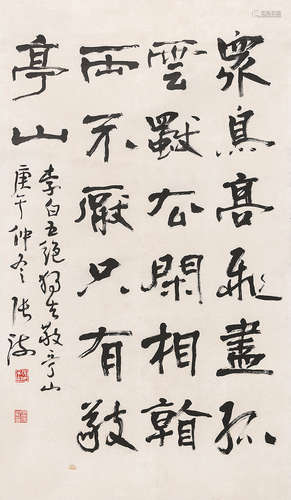 眾鳥高飛盡孤
雲獨去閑相看
兩不厭只有敬
亭山
李白五絕獨坐敬亭山
庚午仲冬張海